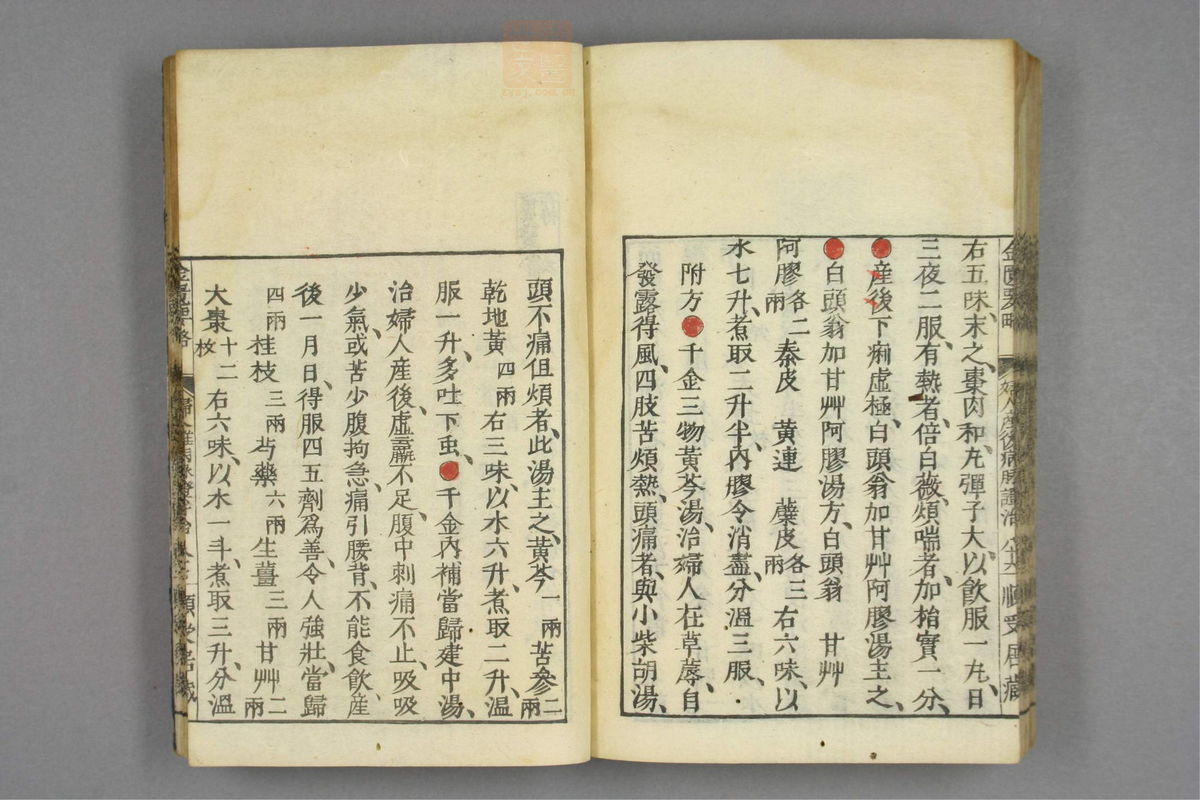 金匱要略
婦人産後病脉證治
右五味、末之、棗肉和、丸彈子大、以飲服一丸、日
三夜二服、有熱者、倍白薇、煩喘者、加栢實一分、
産後下痢虚極、白頭翁加甘艸阿膠湯主之、
白頭翁加甘艸阿膠湯方、白頭翁 甘艸
阿膠各二兩 秦皮 黄連 蘗皮各三兩 右六味、以
水七升、煮取二升半、内膠令消盡、分温三服、
附方 千金三物黄芩湯、治婦人在草蓐、自
發露得風、四肢苦煩熱、頭痛者、與小柴胡湯、
頭不痛但煩者、此湯主之、黄芩一兩 苦參二兩
乾地黄四兩 右三味、以水六升、煮取二升、温
服一升、多吐下虫、千金内補當歸建中湯、
治婦人産後、虚羸不足、腹中刺痛不止、吸吸
少氣、或苦少腹拘急、痛引腰背、不能食飲、産
後一月日、得服四五劑爲善、令人強壯、當歸
四兩 桂枝三兩 芍藥六兩 生薑三兩 甘艸二兩
大棗十二枚 右六味、以水一斗、煮取三升、分温